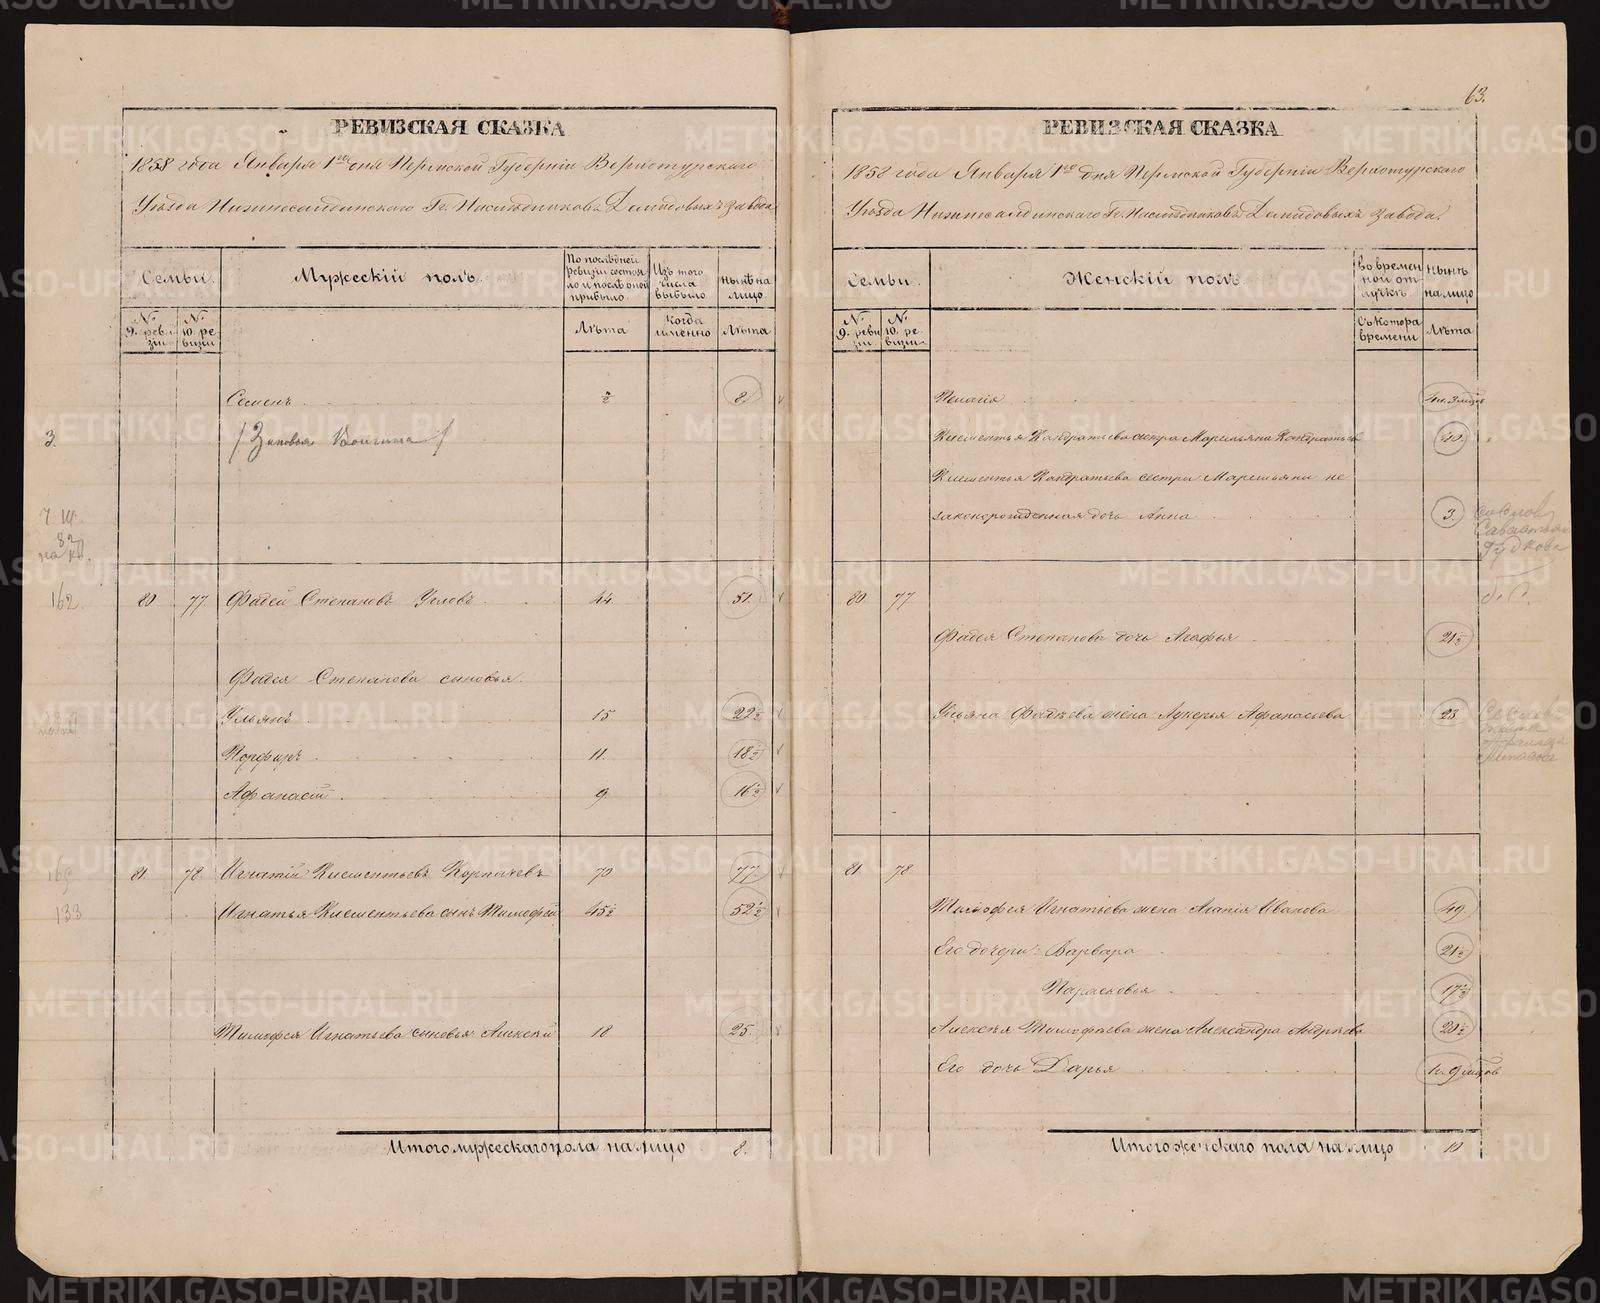 63.
РЕВИЗСКАЯ СКАЗКА
1858 года Января 1го дня Пермской Губерніи Верхотурскаго
Уѣзда Нижнесалдинскаго Гг. Наслѣдниковъ Демидовыхъ завода
Семьи.
Мужескій полъ.
По послѣдней ревизіи состояло и послѣ оной прибыло.
Изъ того числа выбыло
нынѣ на лицо
№ 9. ревизіи
№ 10. ревизіи
Лѣта
Когда именно
Лѣта
Семенъ 8.
3.
162. 80 77 Фадей Степановъ Углов 44 51.
Фадея Степанова сыновья
Ульянъ 15 22½
Порфиръ 11. 18½
Афанасій 9 16½
81 78. Игнатій Клементьевъ Корпачевъ 70 77
133 Игнатья Клементьева сынъ Тимофей 45½ 52½
Тимофея Игнатьева сыновья Алексѣй 18 25.
Итого мужескаго пола на лицо 8.
РЕВИЗСКАЯ СКАЗКА
1858 года Января 1го дня Пермской Губерніи Верхотурскаго
Уѣзда Нижнесалдинскаго Гг. Наслѣдниковъ Демидовыхъ завода.
Семьи.
Женскій полъ.
Во временной отлучкѣ.
нынѣ на лицо
№ 9. ревизіи
№ 10. ревизіи
Съ котора времени
Лѣта
Пелагія
Клементья Кандратьева сестра Маремьяна Кандратьева 40.
Клементья Кандратьева сестры Маремьяны не
законорожденная дочь Анна 3.
80 77
Фадея Степанова дочь Агафья 21½
Ульяна Фадѣева жена Лукерья Афанасьева 23
81 78
Тимофея Игнатьева жена Агапія Иванова 49
Его дочери: Варвара 21½
Парасковья 17½
Алексѣя Тимофѣева жена Александра Андрѣева 20½
Его дочь Дарья
Итого женскаго пола на лицо 10
METRIKI.GASO-URAL.RU